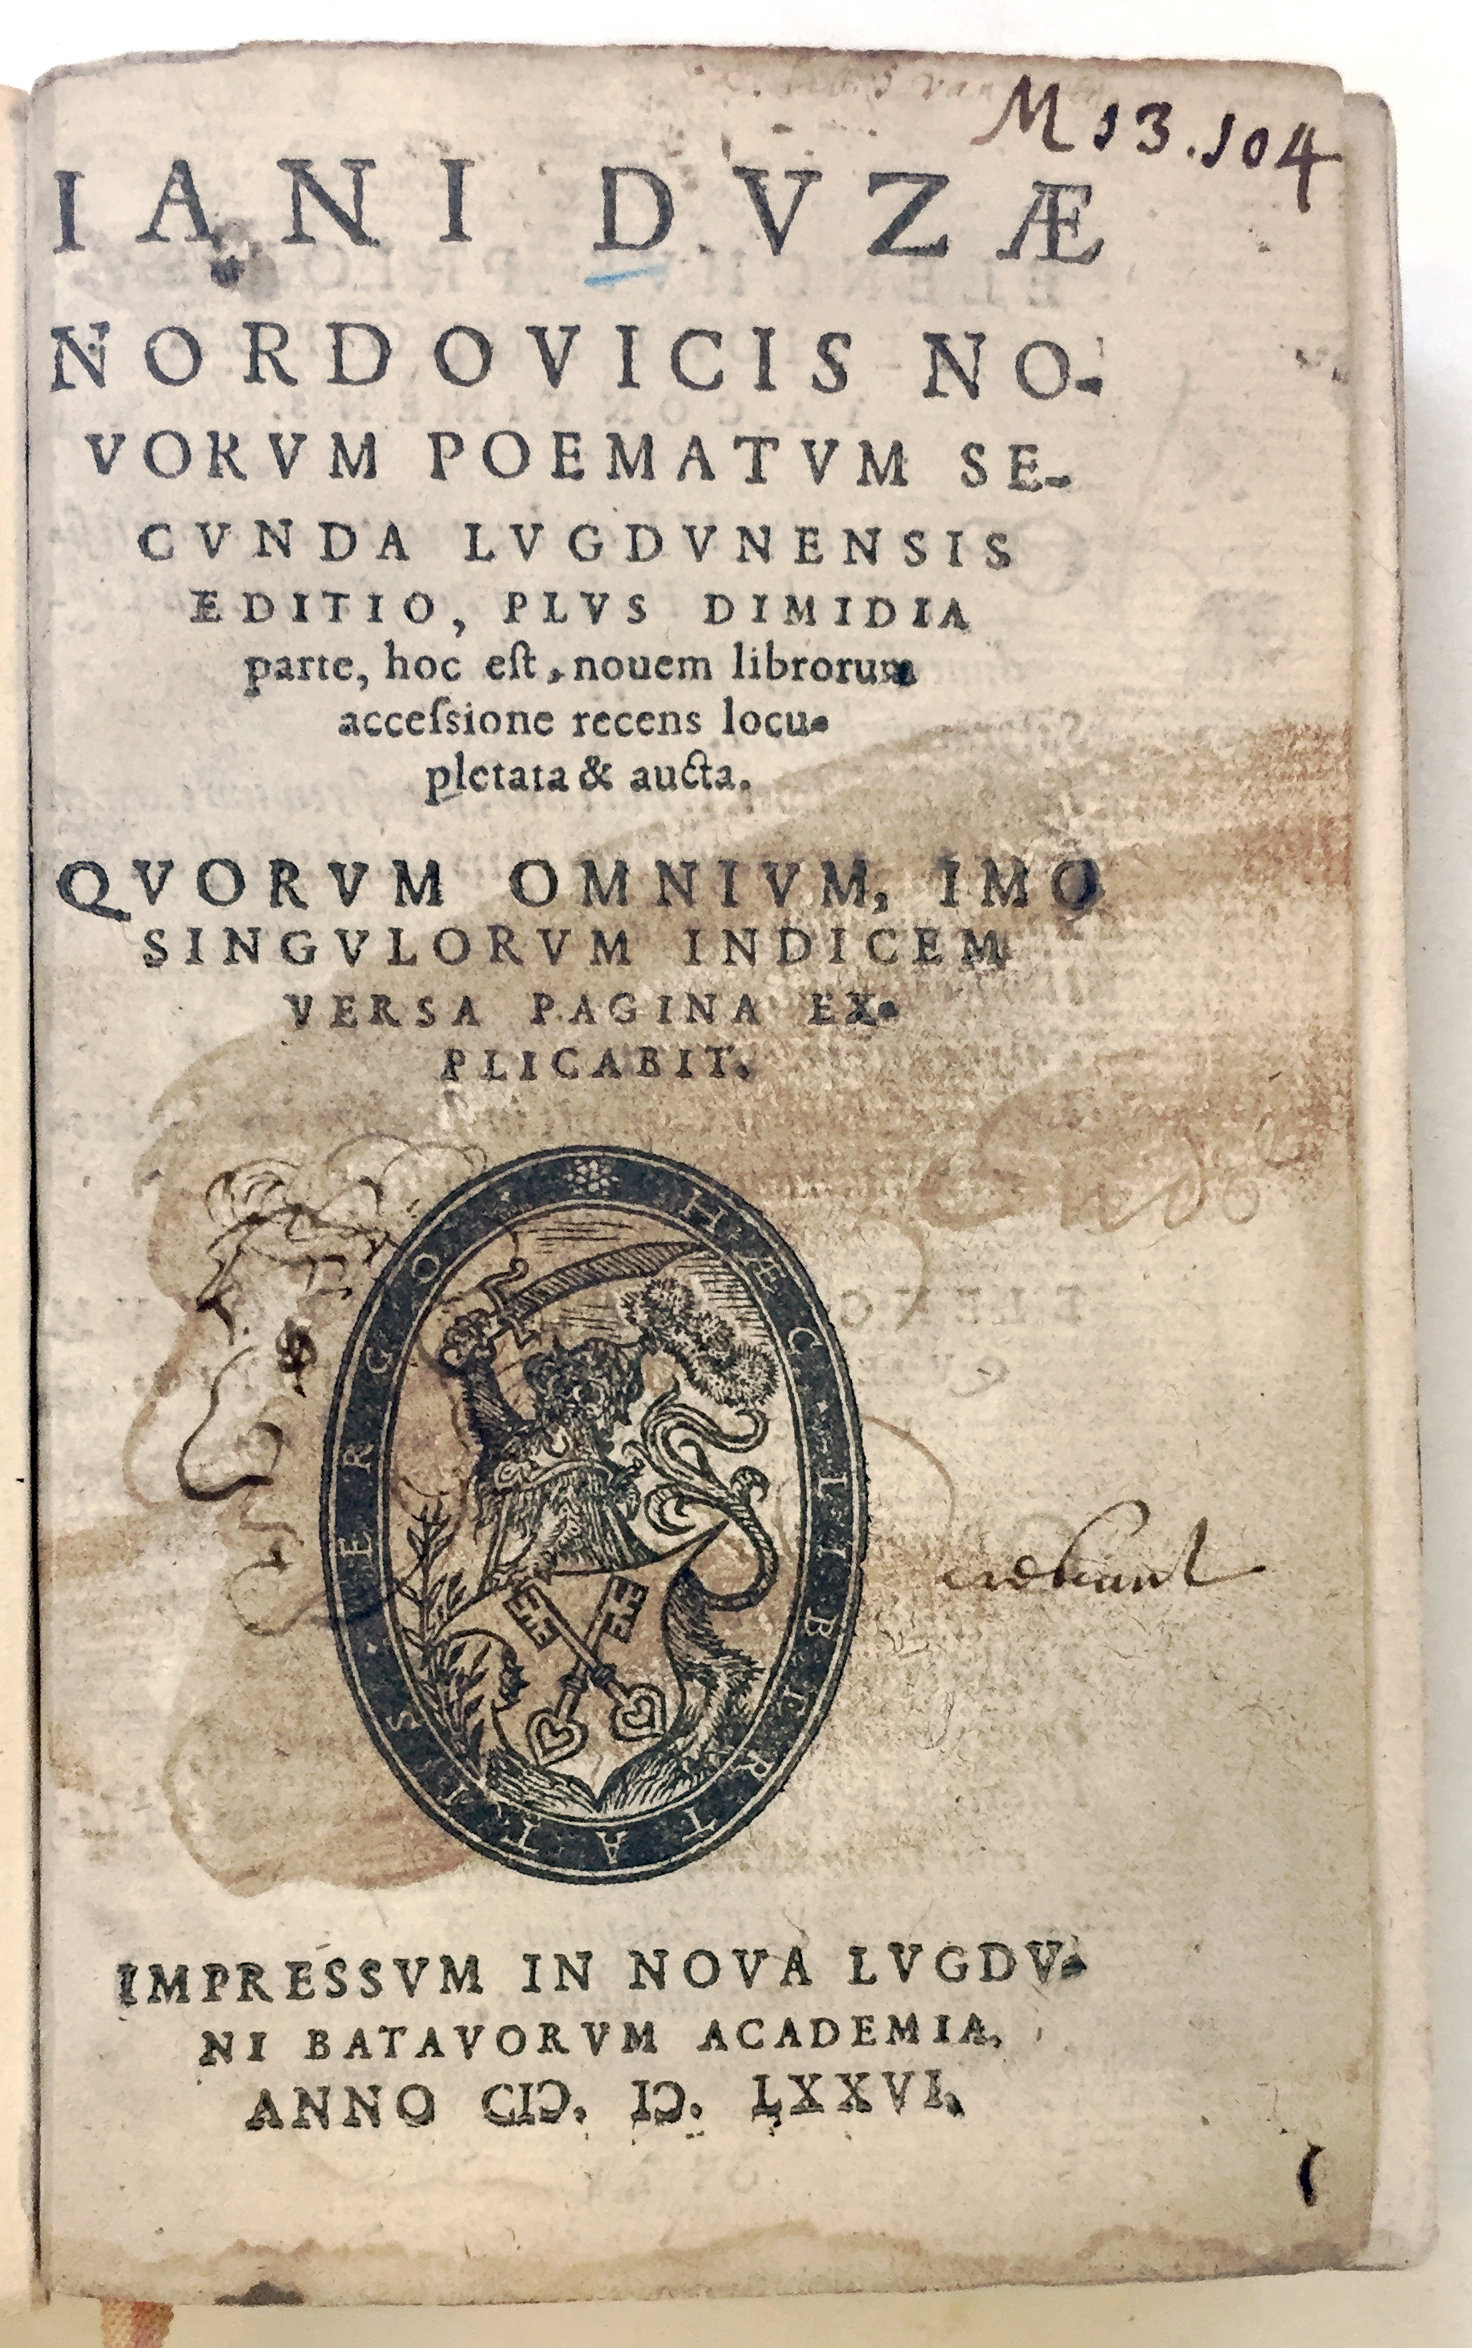 M 13.104
IANI DVZÆ
NORDOVICIS NO-
VORVM POEMATVM SE-
CVNDA LVGDVNENSIS
EDITIO, PLVS DIMIDIA
parte, hoc eſt, nouem librorum
acceſsione recens locu-
pletata & aucta.
QVORVM OMNIVM, IMO
SINGVLORVM INDICEM
VERSA PAGINA EX-
PLICABIT.
HÆC LIBERTATIS ERGO
IMPRESSVM IN NOVA LVGDV-
NI BATAVORVM ACADEMIA,
ANNO CIↃ. IↃ. LXXVI.